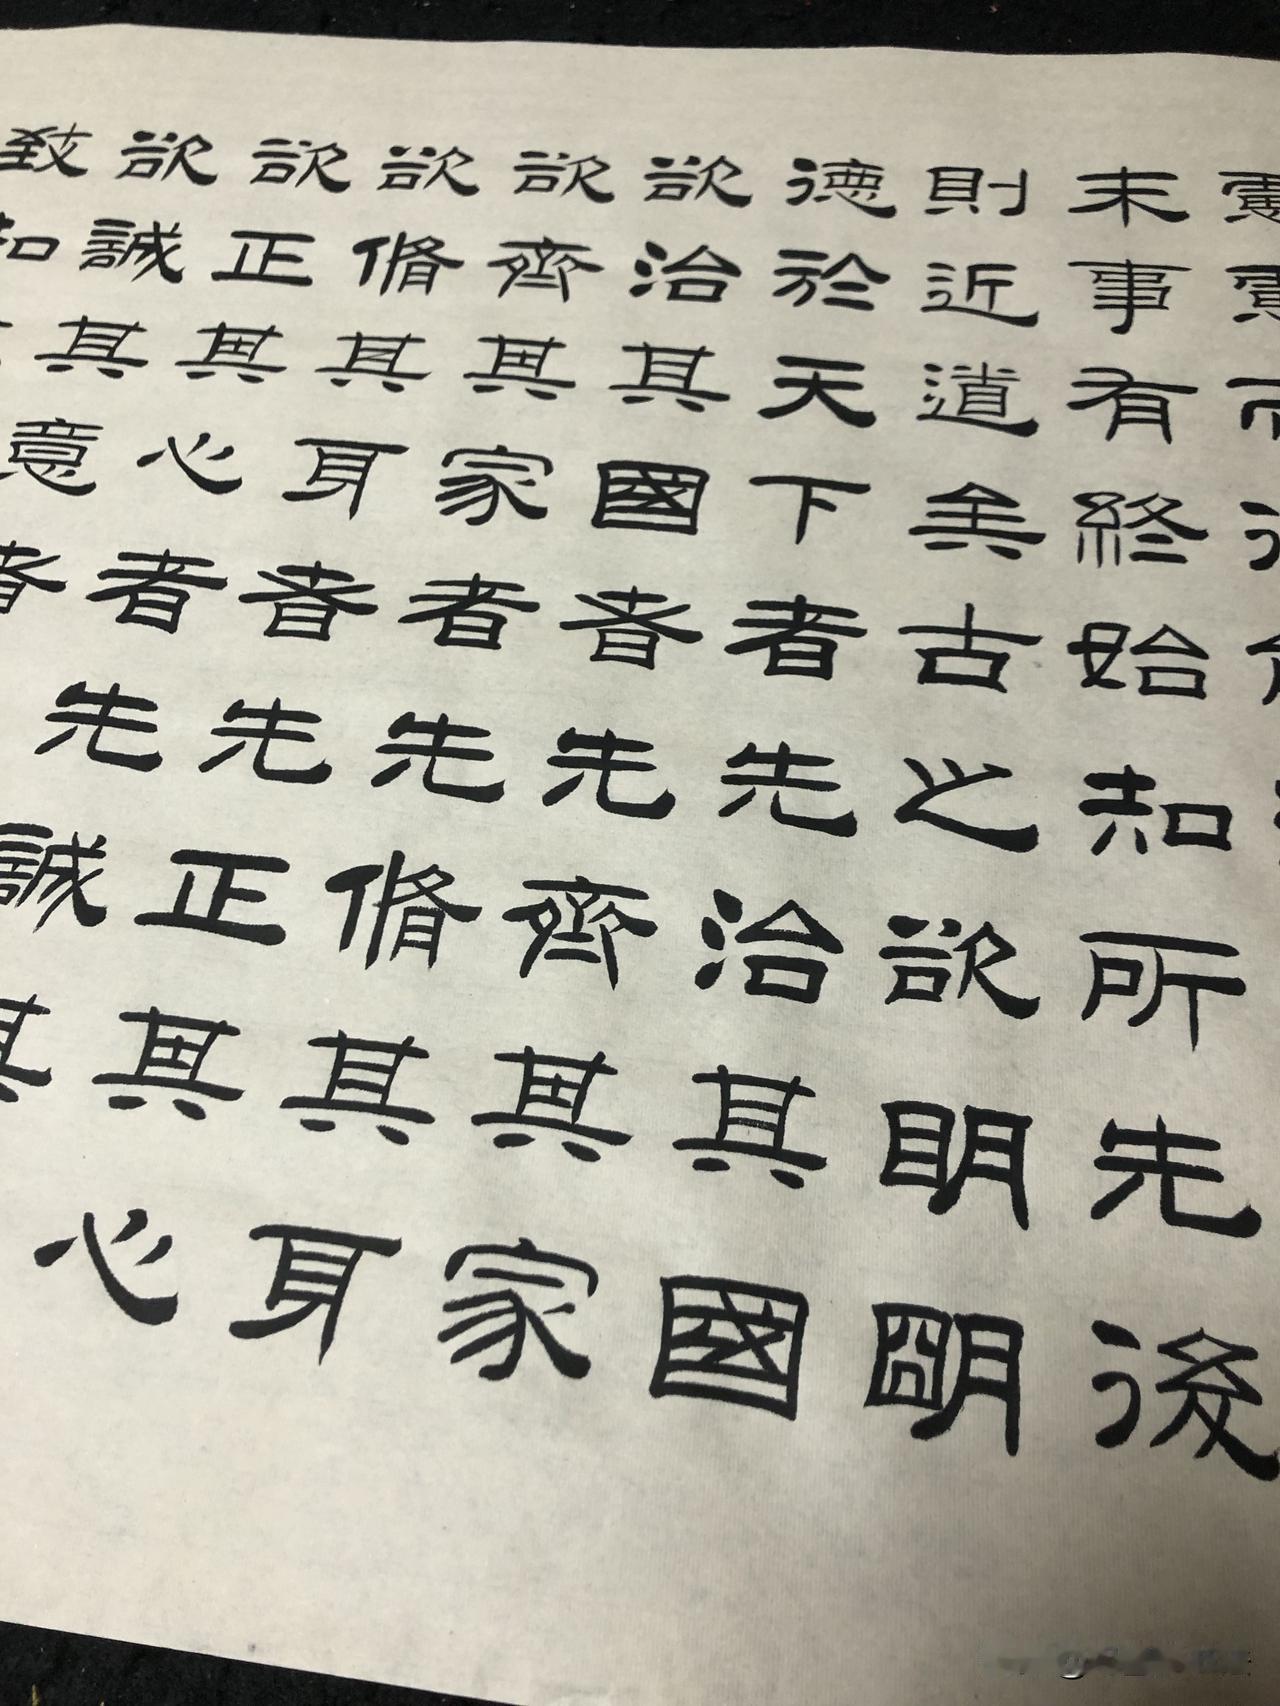 末事有終始知所先後
則近道矣古之欲明明
德於天下者先治其國
欲治其國者先齊其家
欲齊其家者先脩其身
欲脩其身者先正其心
欲正其心者先誠其
欲誠其意者
致知